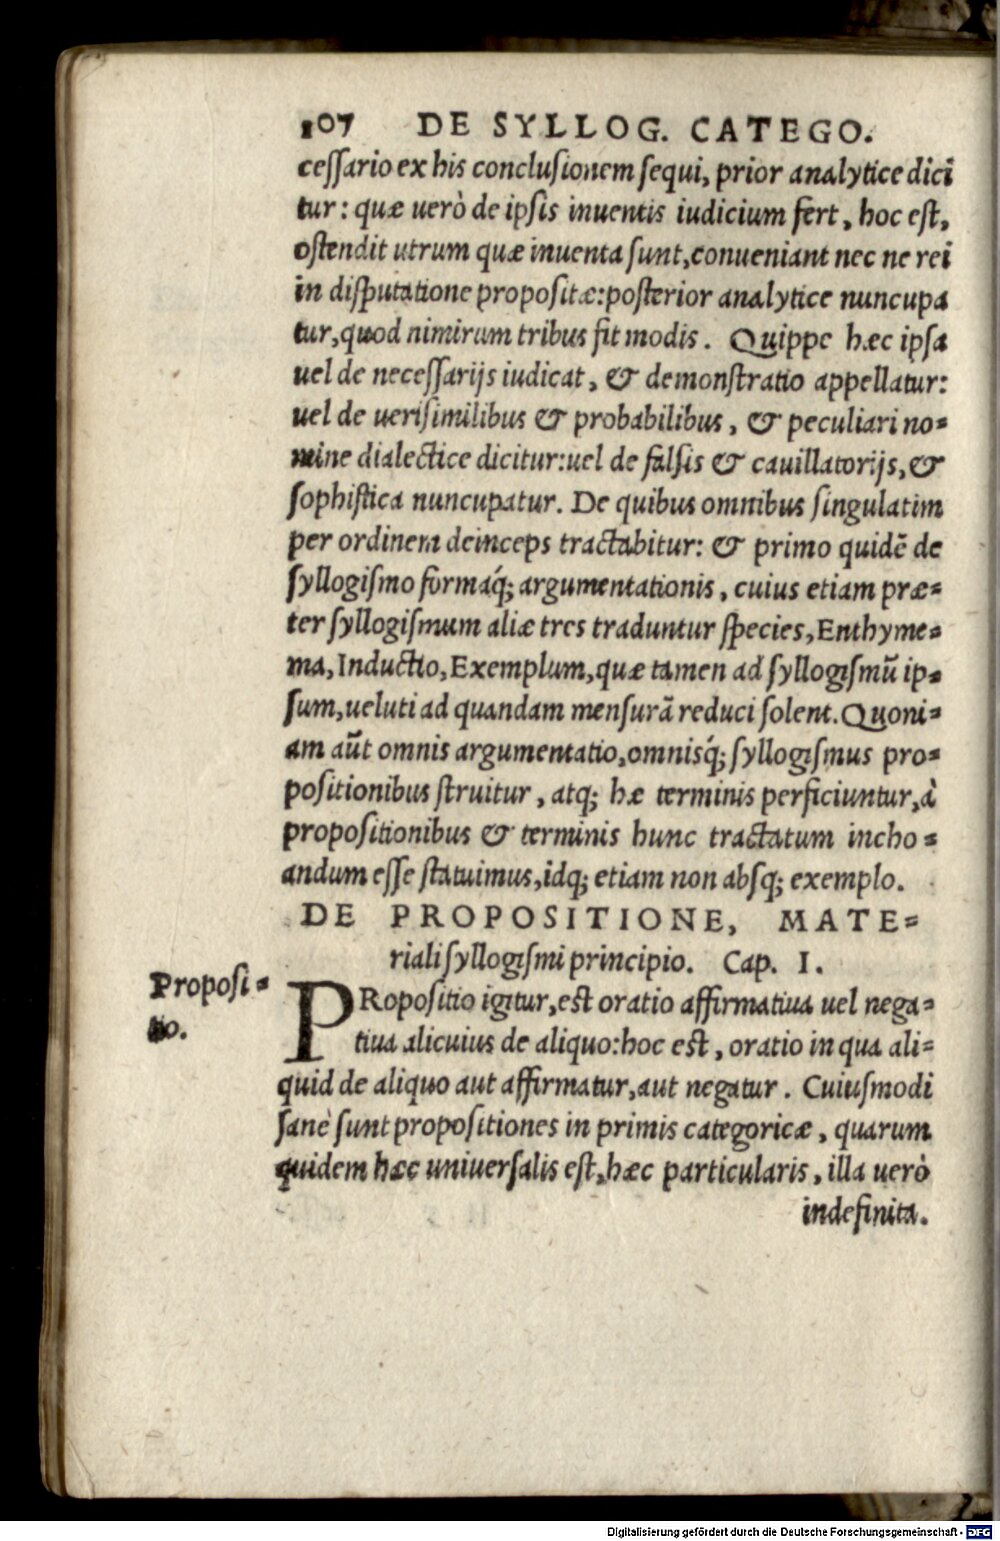 107 DE SYLLOG. CATEGO.
ceſſario ex his concluſionem ſequi, prior analytice dici
tur: quæ uerò de ipſis inuentis iudicium fert, hoc eſt,
oſtendit utrum quæ inuenta ſunt, conueniant nec ne rei
in diſputatione propoſitæ: poſterior analytice nuncupa
tur, quod nimirum tribus fit modis. Quippe hæc ipſa
uel de neceſſarijs iudicat, & demonſtratio appellatur:
uel de ueriſimilibus & probabilibus, & peculiari no=
mine dialectice dicitur: uel de falſis & cauillatorijs, &
ſophiſtica nuncupatur. De quibus omnibus ſingulatim
per ordinem deinceps tractabitur: & primo quidē de
ſyllogiſmo formáq; argumentationis, cuius etiam præ=
ter ſyllogiſmum aliæ tres traduntur ſpecies, Enthyme=
ma, Inductio, Exemplum, quæ tamen ad ſyllogiſmū ip=
ſum, ueluti ad quandam menſurā reduci ſolent. Quoni=
am aūt omnis argumentatio, omnisq́; ſyllogiſmus pro=
poſitionibus ſtruitur, atq; hæ terminis perficiuntur, à
propoſitionibus & terminis hunc tractatum incho=
andum eſſe ſtatuimus, idq; etiam non abſq; exemplo.
DE PROPOSITIONE, MATE=
riali ſyllogiſmi principio. Cap. I.
Propoſi=
tio.
PRopoſitio igitur, eſt oratio affirmatiua uel nega=
tiua alicuius de aliquo: hoc eſt, oratio in qua ali=
quid de aliquo aut affirmatur, aut negatur. Cuiuſmodi
ſanè ſunt propoſitiones in primis categoricæ, quarum
quidem hæc uniuerſalis eſt, hæc particularis, illa uerò
indefinita.
Digitalisierung gefördert durch die Deutsche Forschungsgemeinschaft - DFG